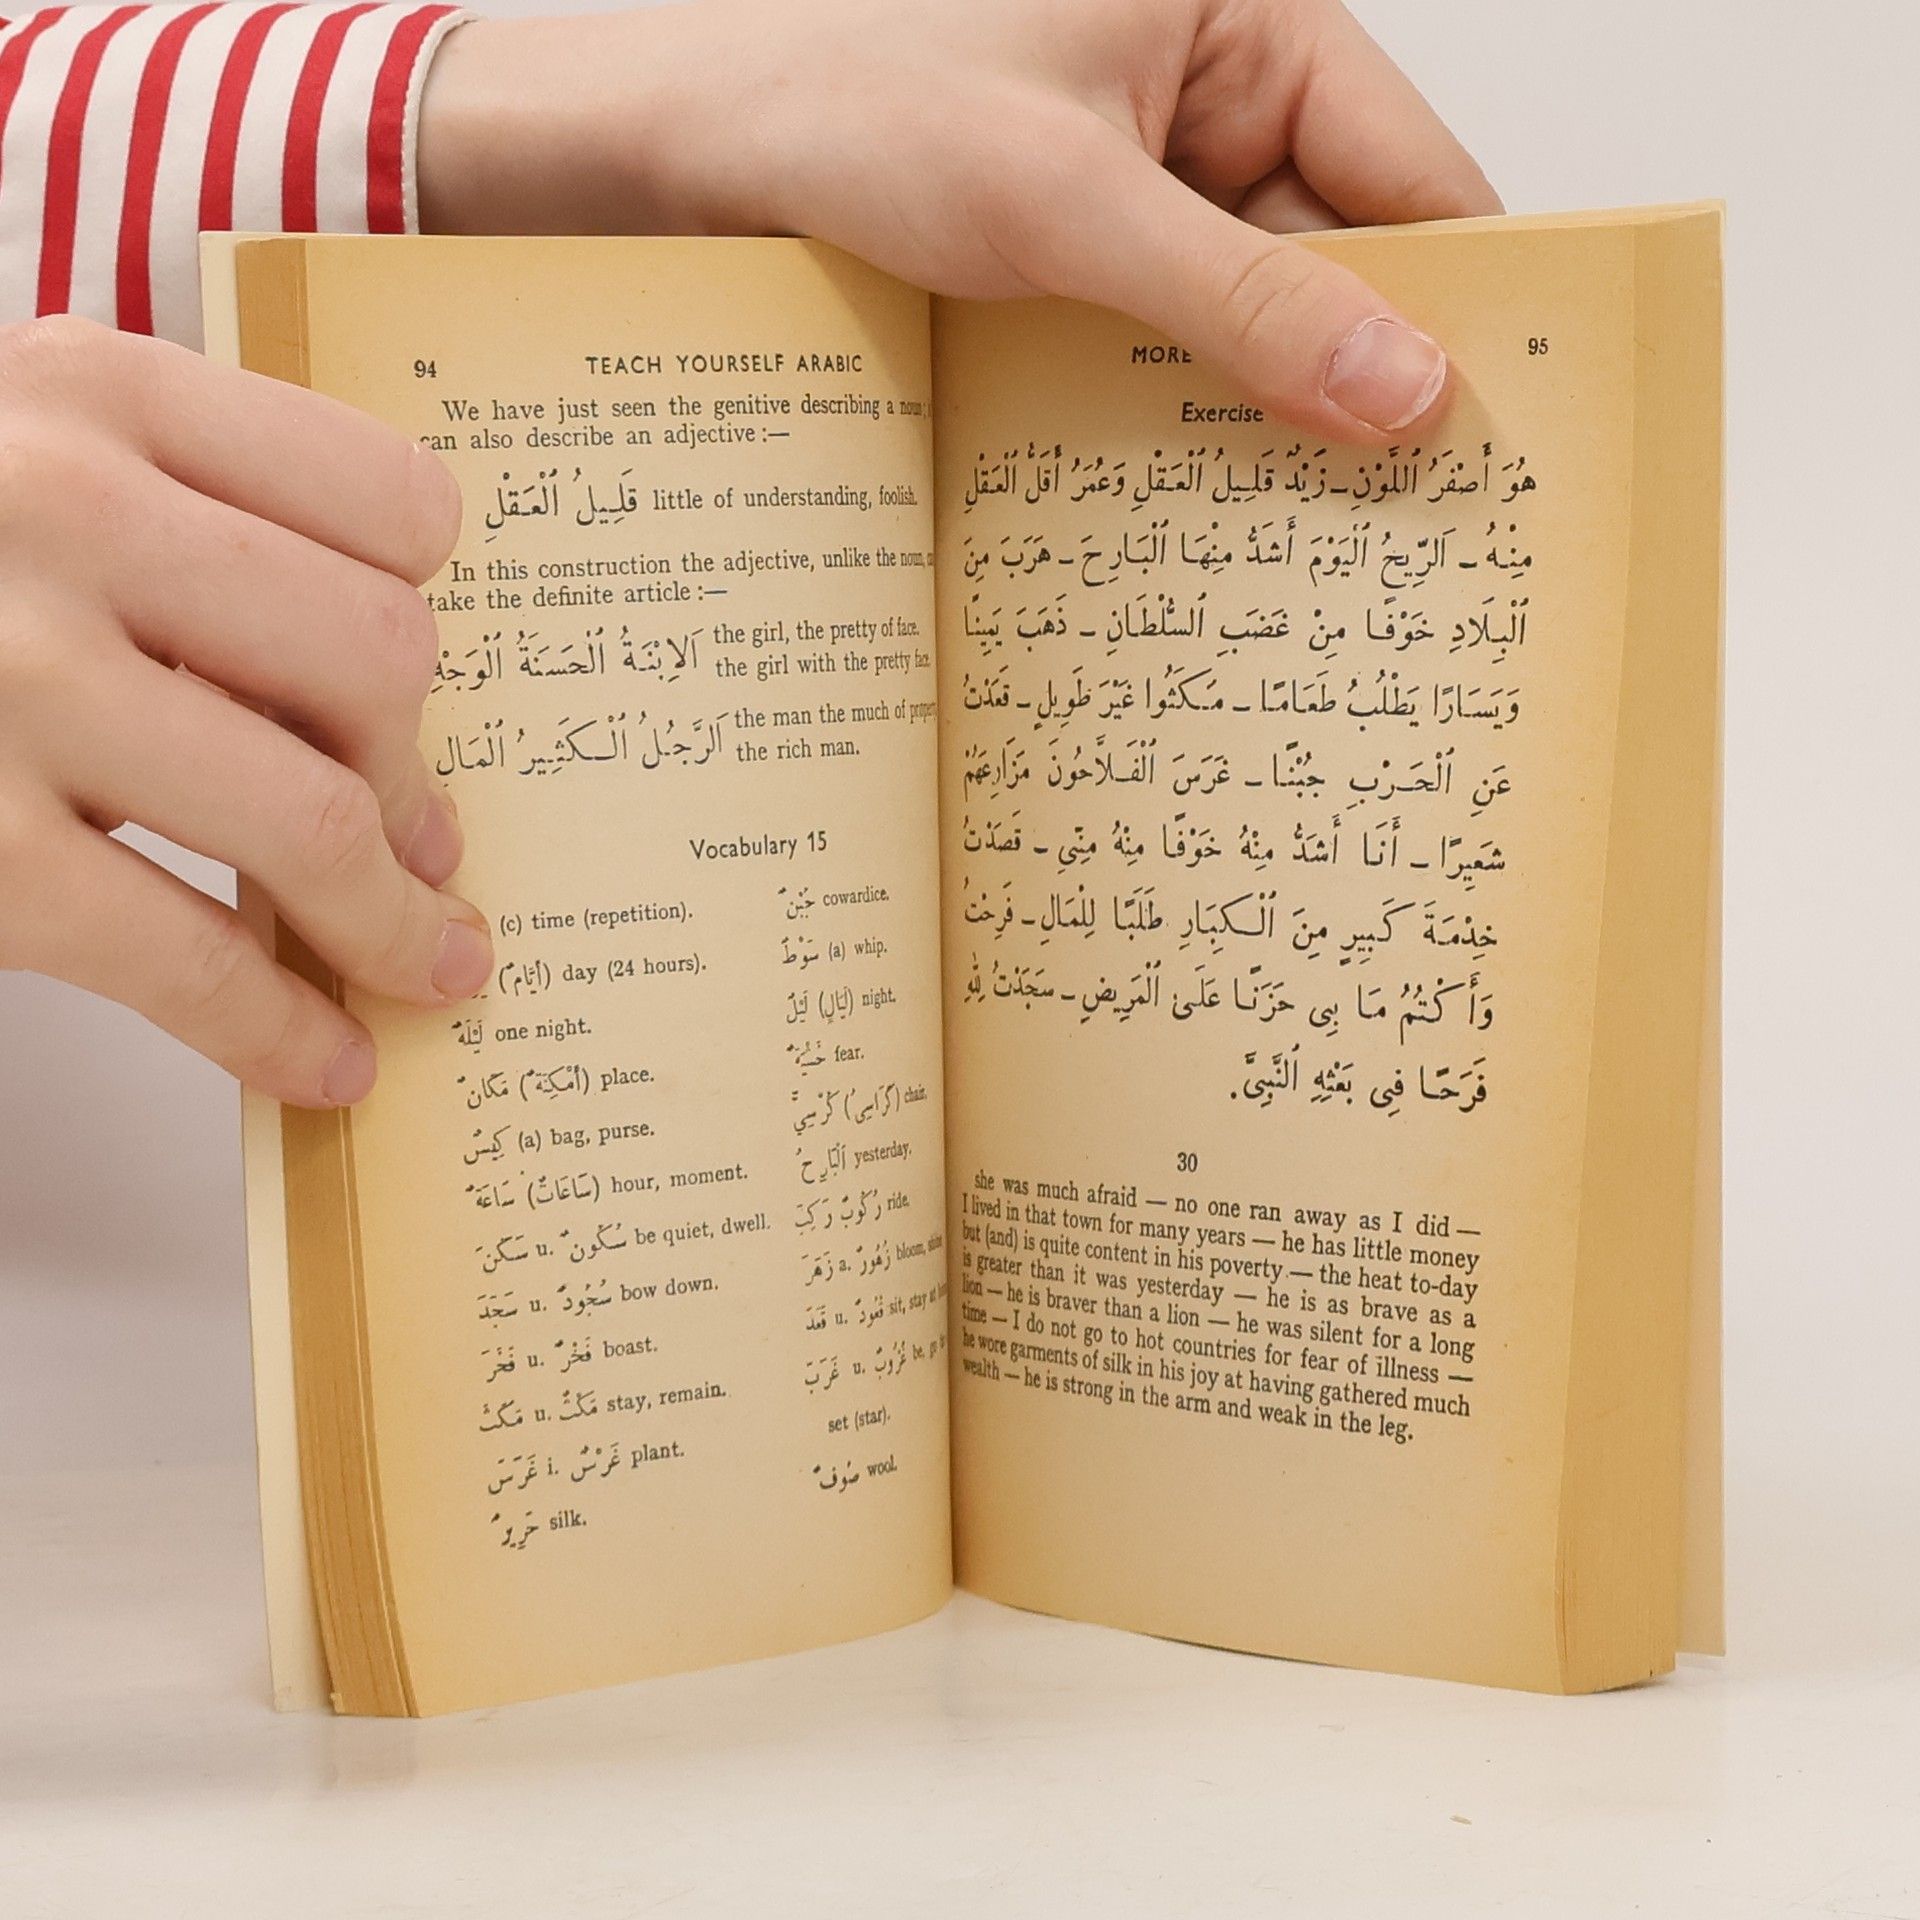 94 TEACH YOURSELF ARABIC
We have just seen the genitive describing a noun;
can also describe an adjective :—
قَلِيلُ ٱلْعَقْلِ little of understanding, foolish.
In this construction the adjective, unlike the noun,
take the definite article :—
اَلِابْنَةُ ٱلْحَسَنَةُ ٱلْوَجْهِ the girl, the pretty of face.
the girl with the pretty face.
اَلرَّجُلُ ٱلْكَثِيرُ ٱلْمَالِ the man the much of
the rich man.
Vocabulary 15
(c) time (repetition).
(أَيَّامٌ) day (24 hours).
لَيْلَةٌ one night.
مَكَانٌ (أَمْكِنَةٌ) place.
كِيسٌ (a) bag, purse.
سَاعَةٌ (سَاعَاتٌ) hour, moment.
سَكَنَ u. سُكُونٌ be quiet, dwell.
سَجَدَ u. سُجُودٌ bow down.
فَخَرَ u. فَخْرٌ boast.
مَكَثَ u. مَكْثٌ stay, remain.
غَرَسَ i. غَرْسٌ plant.
حَرِيرٌ silk.
جُبْنٌ cowardice.
سَوْطٌ (a) whip.
لَيْلٌ (لَيَالٍ) night.
fear.
كُرْسِيٌّ (كَرَاسِيُ) chair.
اَلْبَارِحَ yesterday.
رَكِبَ رُكُوبٌ ride.
زَهَرَ a. زُهُورٌ bloom,
قَعَدَ u. قُعُودٌ sit, stay at
غَرَبَ u. غُرُوبٌ be,
set (star).
صُوفٌ wool.
MORE 95
Exercise
هُوَ أَصْفَرُ ٱللَّوْنِ – زَيْدٌ قَلِيلُ ٱلْعَقْلِ وَعُمَرُ أَقَلُّ ٱلْعَقْلِ
مِنْهُ – اَلرِّيحُ ٱلْيَوْمَ أَشَدُّ مِنْهَا ٱلْبَارِحَ – هَرَبَ مِنَ
ٱلْبِلَادِ خَوْفًا مِنْ غَضَبِ ٱلسُّلْطَانِ – ذَهَبَ يَمِينًا
وَيَسَارًا يَطْلُبُ طَعَامًا – مَكَثُوا غَيْرَ طَوِيلٍ – قَعَدْتُ
عَنِ ٱلْحَرْبِ جُبْنًا – غَرَسَ ٱلْفَلَّاحُونَ مَزَارِعَهُمْ
شَعِيرًا – أَنَا أَشَدُّ مِنْهُ خَوْفًا مِنْهُ مِنِّي – قَصَدْتُ
خِدْمَةَ كَبِيرٍ مِنَ ٱلْكِبَارِ طَلَبًا لِلْمَالِ – فَرِحْتُ
وَأَكْتُمُ مَا بِي حَزَنًا عَلَى ٱلْمَرِيضِ – سَجَدْتُ لِلّٰهِ
فَرَحًا فِي بَعْثِهِ ٱلنَّبِيَّ.
30
she was much afraid — no one ran away as I did —
I lived in that town for many years — he has little money
but (and) is quite content in his poverty — the heat to-day
is greater than it was yesterday — he is as brave as a
lion — he is braver than a lion — he was silent for a long
time — I do not go to hot countries for fear of illness —
he wore garments of silk in his joy at having gathered much
wealth — he is strong in the arm and weak in the leg.